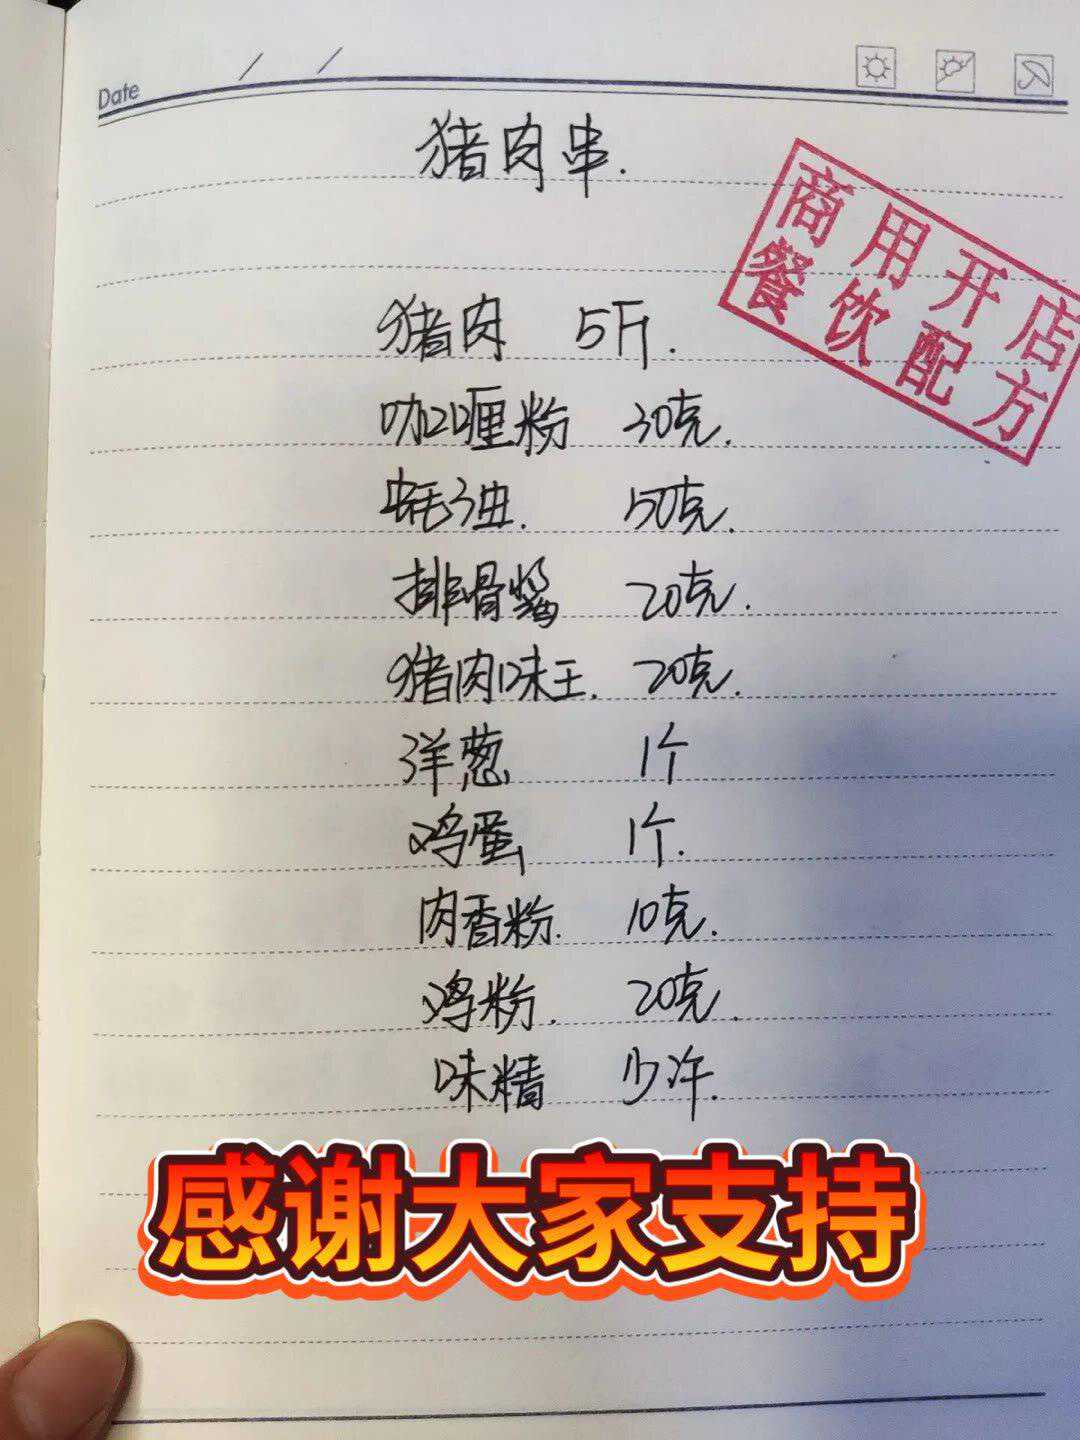 Date / /
猪肉串.
商用开店
餐饮配方
猪肉 5斤.
咖喱粉 30克.
蚝油. 50克.
排骨酱 20克.
猪肉味王. 20克.
洋葱 1个
鸡蛋 1个.
肉香粉. 10克.
鸡粉. 20克.
味精 少许.
感谢大家支持